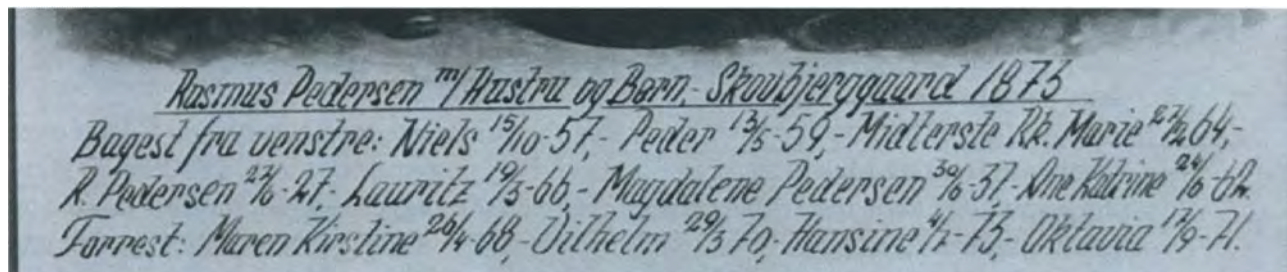 Rasmus Pedersen m/ Hustru og Børn,- Skovbjerggaard 1873
Bagest fra venstre: Niels 15/10-57,- Peder 13/5-59,- Midterste Rk. Marie 27/2 64,-
R. Pedersen 27/6-27,- Lauritz 19/3-66,- Magdalene Pedersen 30/6-37,- Ane Katrine 24/6-62.
Forrest: Maren Kirstine 26/4-68,- Vilhelm 29/3 70,- Hansine 4/7-73,- Oktavia 17/9-71.